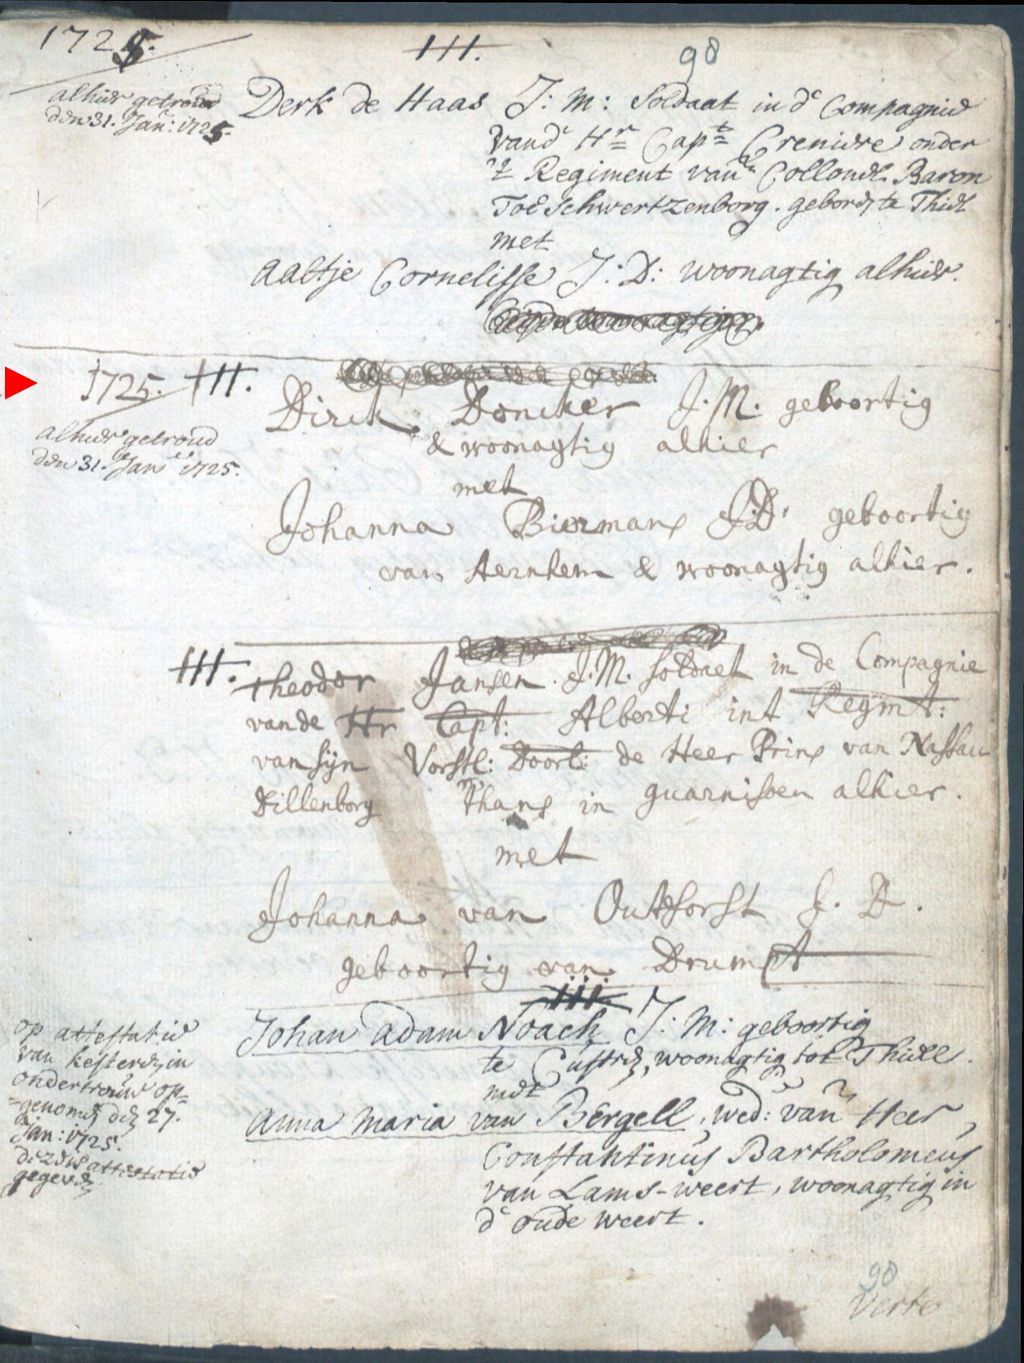 1725.
III.
98
alhier getroud
den 31. Jan: 1725.
Derk de Haas J: M: Soldaat in de Compagnie
vand Hr Capt Creniere onder
't Regiment van Collonel Baron
toe Schwertzenborg. geboren te Thiel
met
Aaltje Cornelisse J: D: woonagtig alhier.
1725. III.
alhier getroud
den 31. Jan 1725.
Dirck Doncker J. M. geboortig
& woonagtig alhier
met
Johanna Biermans J: D. geboortig
van Aernhem & woonagtig alhier.
III.
Theodor Jansen. J. M. soldaet in de Compagnie
van de Hr Capt: Alberti int Regmt:
van sijn Vorstl: Doorl: de Heer Prins van Nassau
Dillenborg thans in guarnisoen alhier.
met
Johanna van Outhforst J. D.
geboortig van Drumpt
III.
op attestatie
van kesteren in
ondertrouw op-
genomen den 27.
Jan: 1725.
attestatie
gegeven
Johan adam Noach J: M: geboortig
te Custrin, woonagtig tot Thiell.
met
Anna Maria van Bergell, wed: van Heer,
Constantinus Bartholomeus
van Lams-weert, woonagtig in
de oude weert.
98
Verte